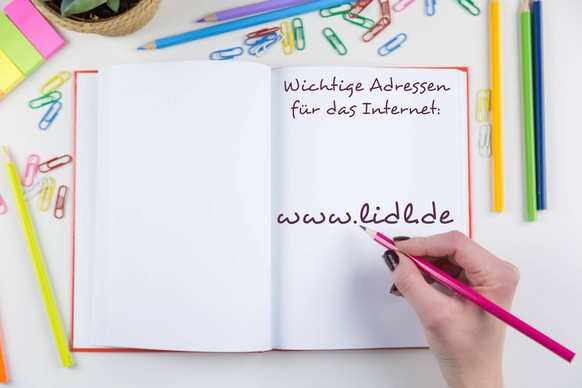 Wichtige Adressen
für das Internet:
www.lidl.de